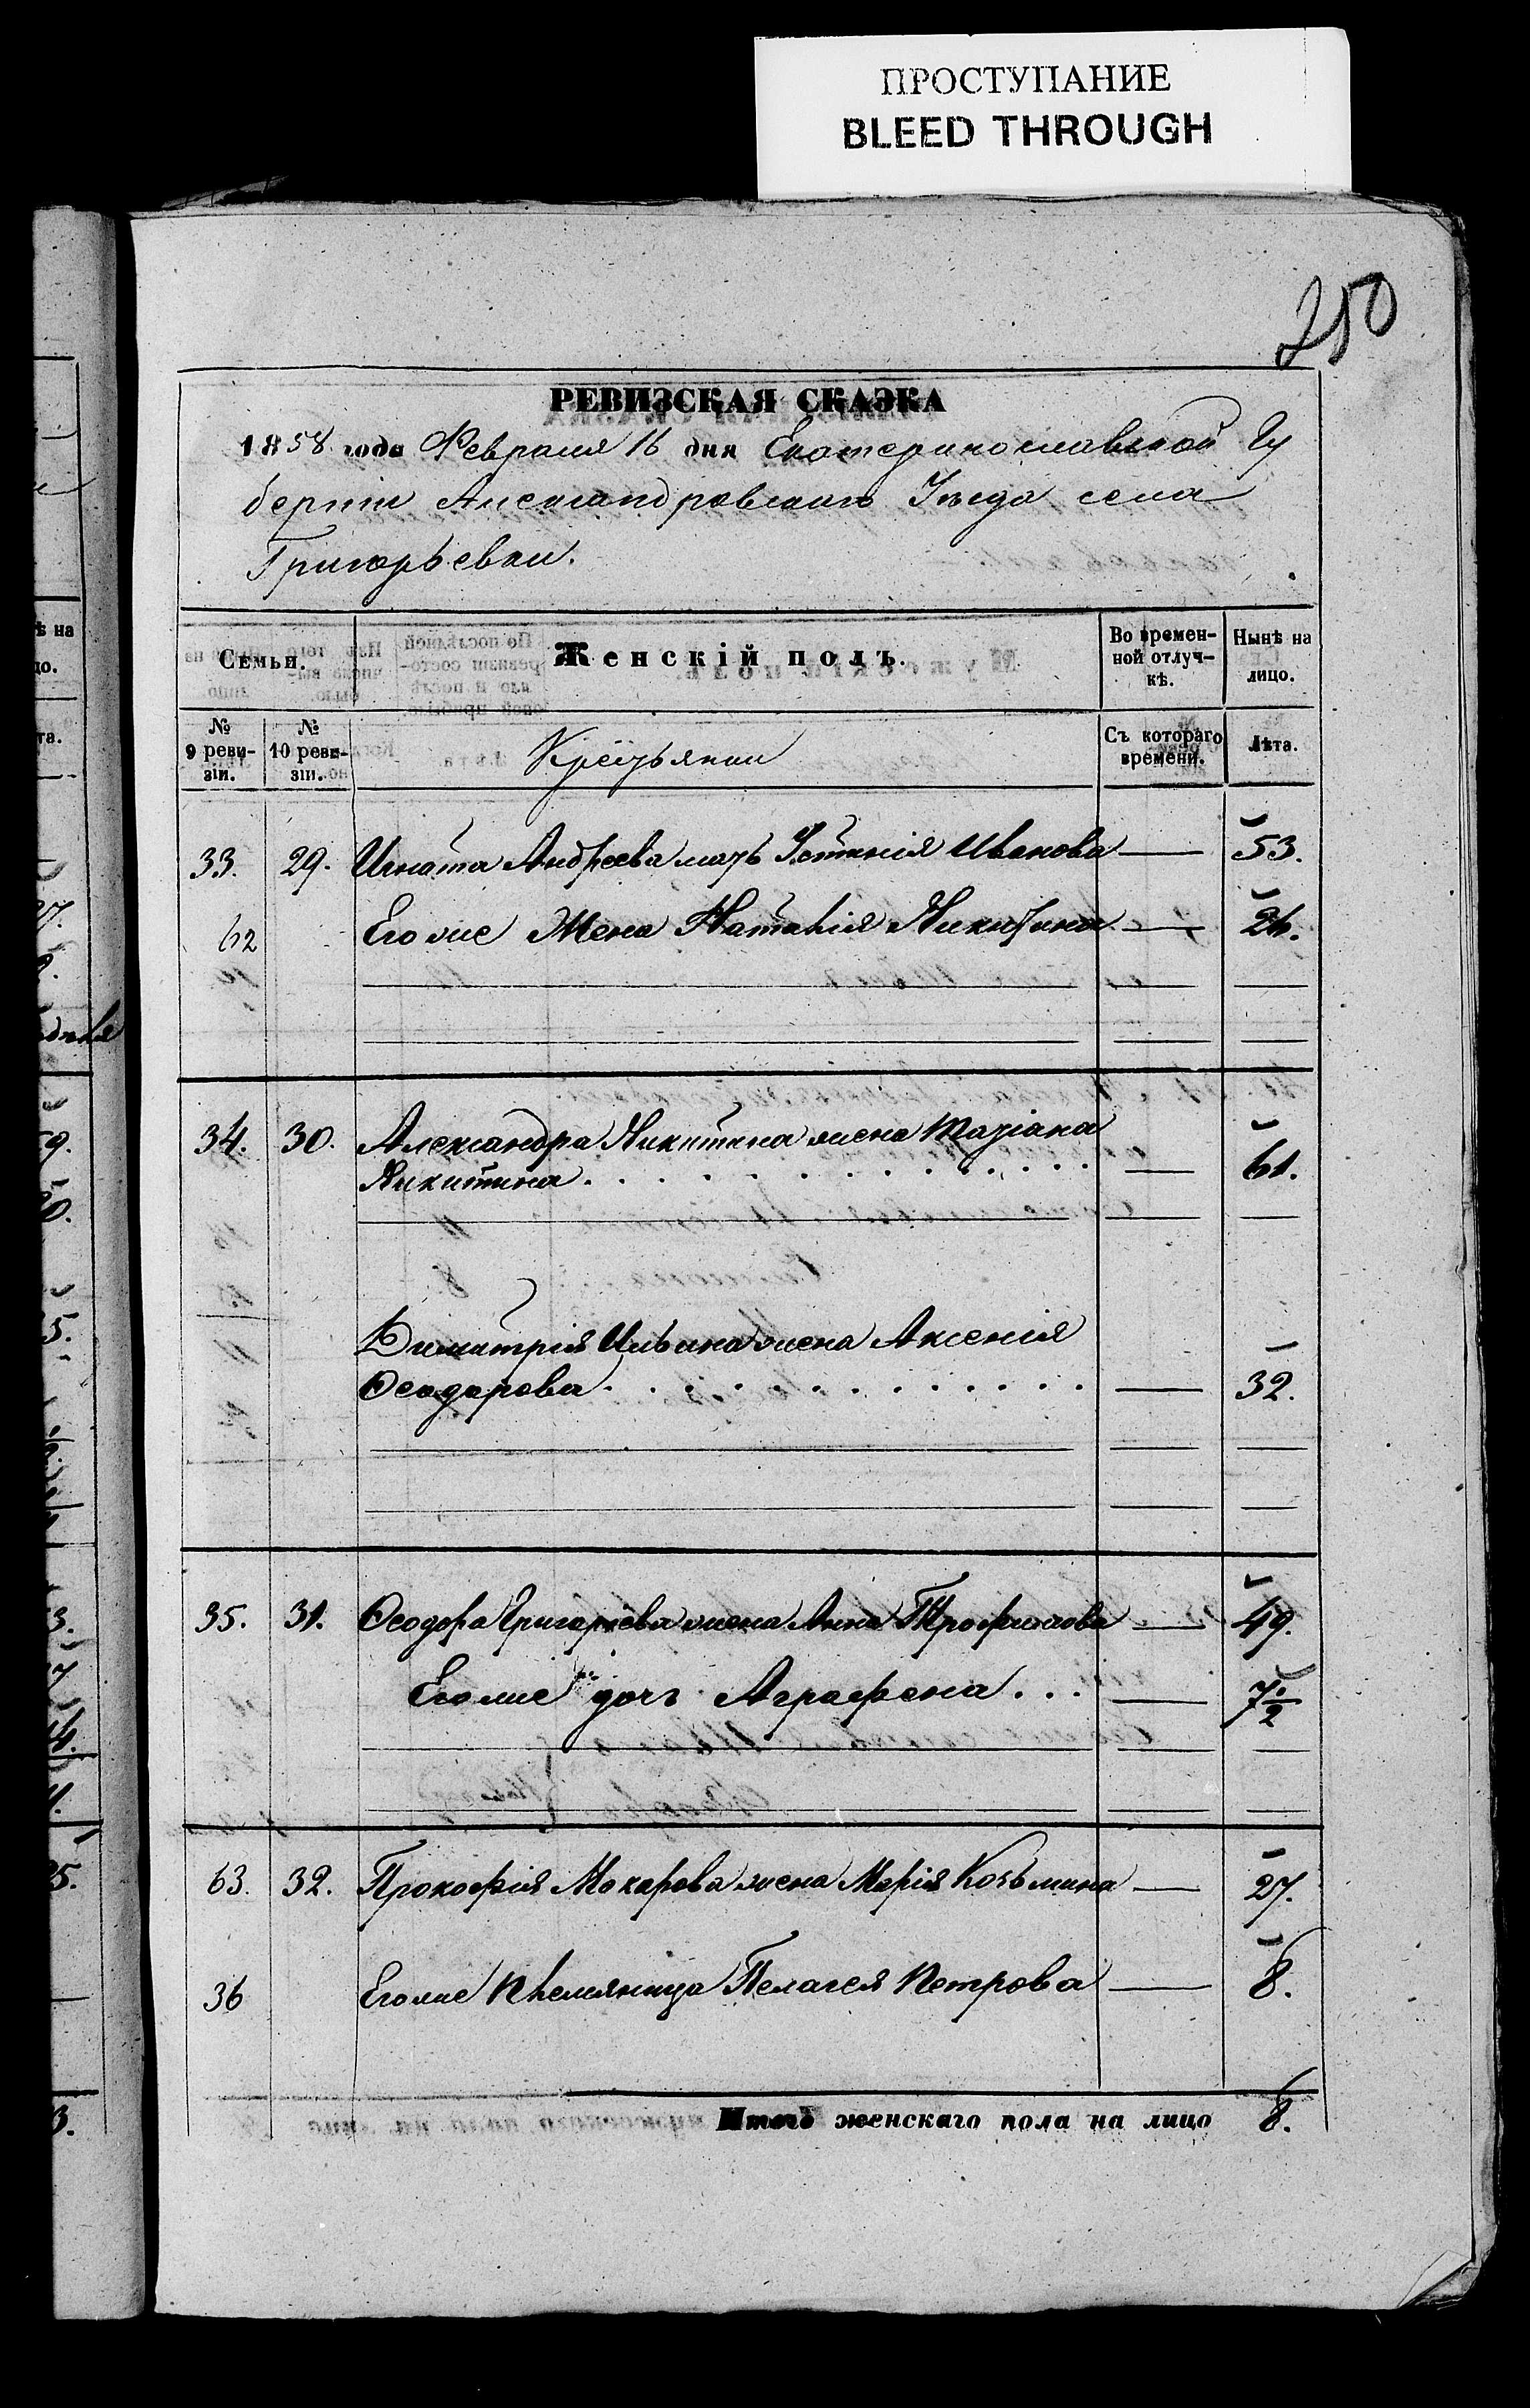 ПРОСТУПАНИЕ
BLEED THROUGH
250
РЕВИЗСКАЯ СКАЗКА
1858 года Февраля 16 дня Екатеринославской Гу
берніи Александровскаго Уѣзда села
Григорьевки.
Семьи.
Женскій полъ.
Во времен-
ной отлуч-
кѣ.
Нынѣ на
лицо.
№
9 реви-
зіи.
№
10 реви-
зіи.
Крестьянки
Съ котораго
времени.
Лѣта.
33. 29. Игната Андреева мать Устинія Иванова — 53.
62 Его же Жена Наталія Никитина — 26.
34. 30. Александра Никитина жена Татіана
Никитина — 61.
Димитрія Ильина жена Аксенія
Ѳеодорова — 32.
35. 31. Ѳеодора Григорьева жена Анна Трофимова — 49.
Его же дочь Аграфена — 7½
63. 32. Прокофія Макарова жена Марія Козьмина — 27.
36 Его же племяница Пелагея Петрова — 8.
Итого женскаго пола на лицо 8.